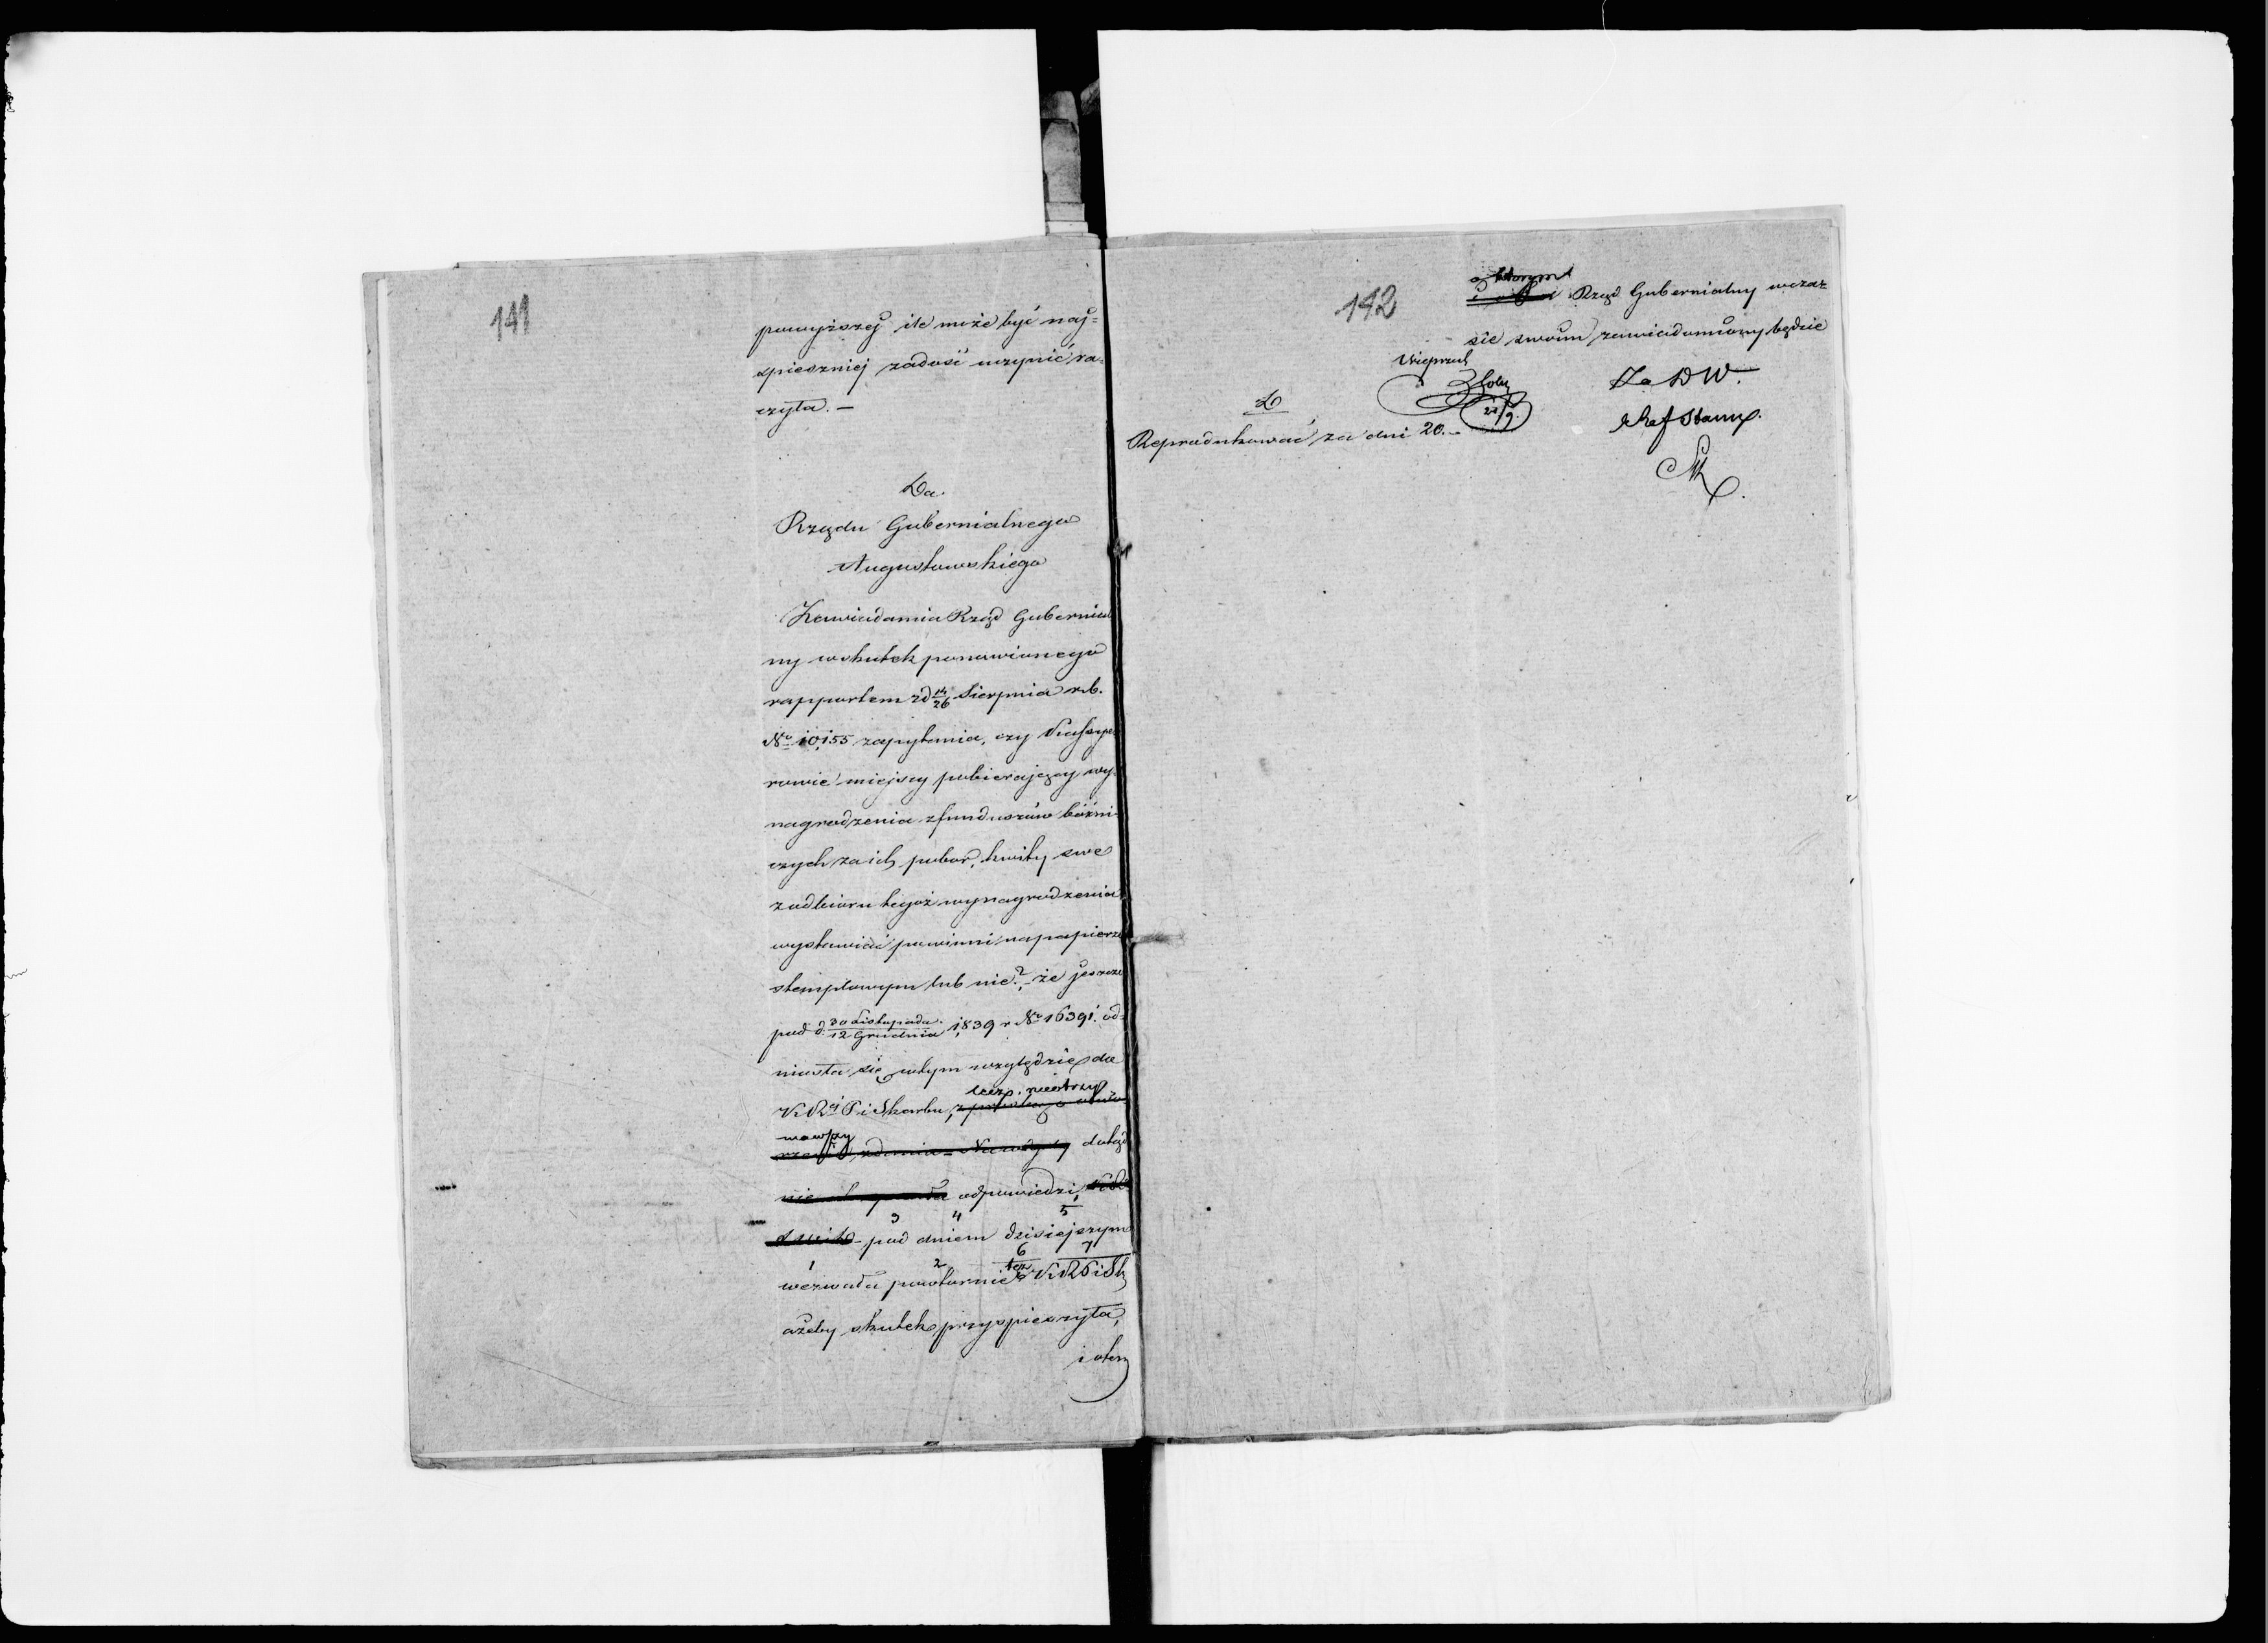 141
powyższej ile może być naj=
spieszniej zadość uczynić ra=
czyła. —
Do
Rządu Gubernialnego
Augustowskiego
Zawiadamia Rząd Gubernial
ny wskutek ponowionego
rapportem zd 14/26 Sierpnia r.b.
No 10,155 zapytania, czy Kassye
rowie miejscy pobierający wy
nagrodzenia z funduszów bóżni
czych za ich pobor, kwity swe
z odbioru tegoż wynagrodzenia
wystawiać powinni na papierze
stemplowym lub nie?, że jeszcze
pod d. 30 Listopada/12 Grudnia 1839 r No 16391. od=
niosła się w tym względzie do
lecz nieotrzy
K R P i Skarbu,
mawszy
dotąd
odpowiedzi,
3 4 5
pod dniem dzisiejszym
1 2 6 7
wezwała powtornie też KRPiSk
ażeby skutek przyspieszyła,
i o tem
142
Rząd Gubernialny w cza=
sie swoim zawiadomiony będzie
Za D W.
Ref Stamp.
D
Reprodukować za dni 20. -
21/9.